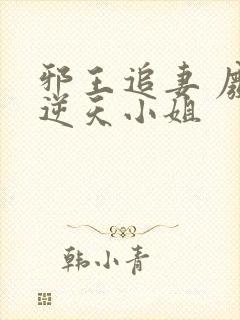 邪王追妻
逆天小姐
韩小青